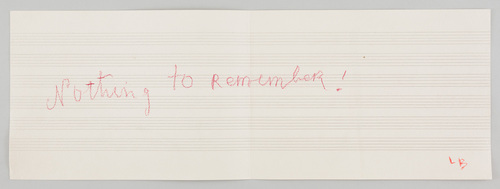 Nothing to remember!
LB